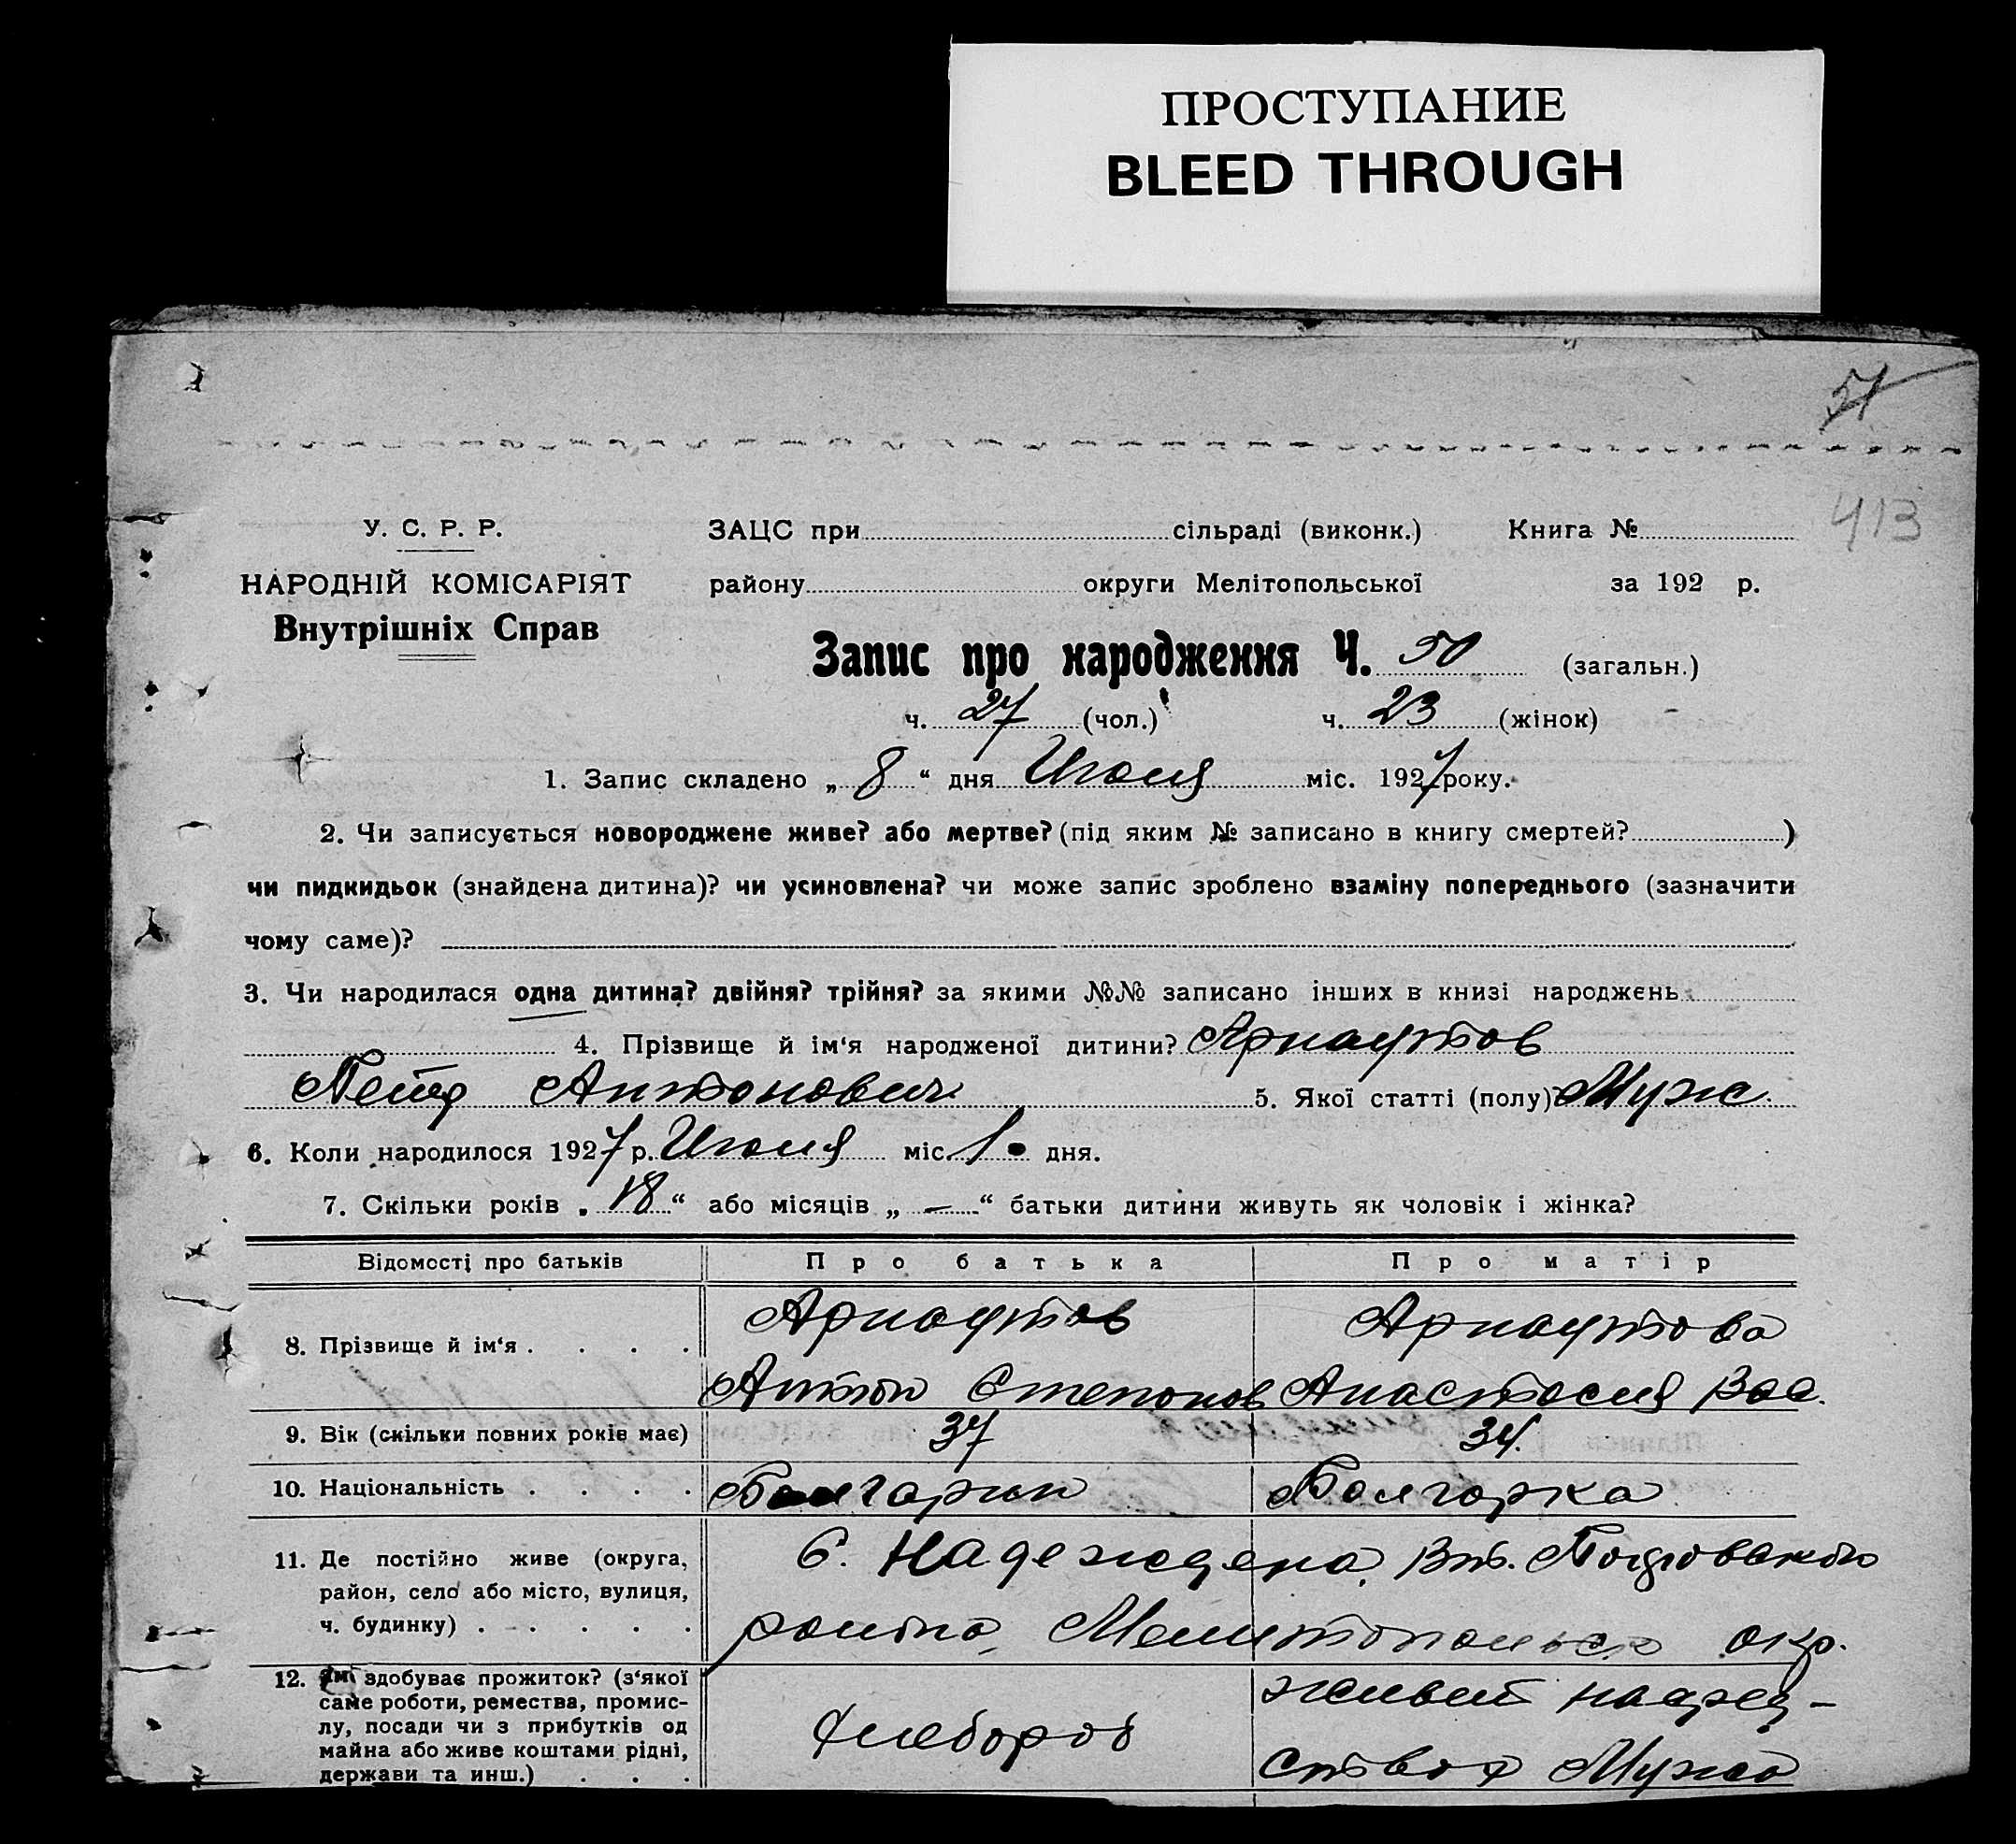 ПРОСТУПАНИЕ
BLEED THROUGH
51
413
У. С. Р. Р.
ЗАЦС при сільраді (виконк.) Книга №
НАРОДНІЙ КОМІСАРІЯТ
району округи Мелітопольської за 192 р.
Внутрішніх Справ
Запис про народження Ч. 50 (загальн.)
ч. 27 (чол.) ч. 23 (жінок)
1. Запис складено „ 8 “ дня Июля міс. 1927 року.
2. Чи записується новороджене живе? або мертве? (під яким № записано в книгу смертей? )
чи пидкидьок (знайдена дитина)? чи усиновлена? чи може запис зроблено взаміну попереднього (зазначити
чому саме)?
3. Чи народилася одна дитина? двійня? трійня? за якими №№ записано інших в книзі народжень
4. Прізвище й ім‘я народженої дитини? Арнаутов
Петр Антонович 5. Якої статті (полу) Муж.
6. Коли народилося 1927 р. Июля міс. 1 дня.
7. Скільки років „ 18 “ або місяців „ — “ батьки дитини живуть як чоловік і жінка?
Відомості про батьків Про батька Про матір
8. Прізвище й ім‘я . . . . Арнаутов Арнаутова
Антон Степанов Анастасия Вас.
9. Вік (скільки повних років має) 37 34.
10. Національність . . . . Болгарин Болгарка
11. Де постійно живе (округа, район, село або місто, вулиця, ч. будинку) . . . . .
С. Надеждена,
района, Мелитопольск окр.
12. здобуває прожиток? (з‘якої
саме роботи, ремества, промис-
лу, посади чи з прибутків од
майна або живе коштами рідні,
держави та инш.) . . .
Хлебороб
живет на сред-
ствах Мужа